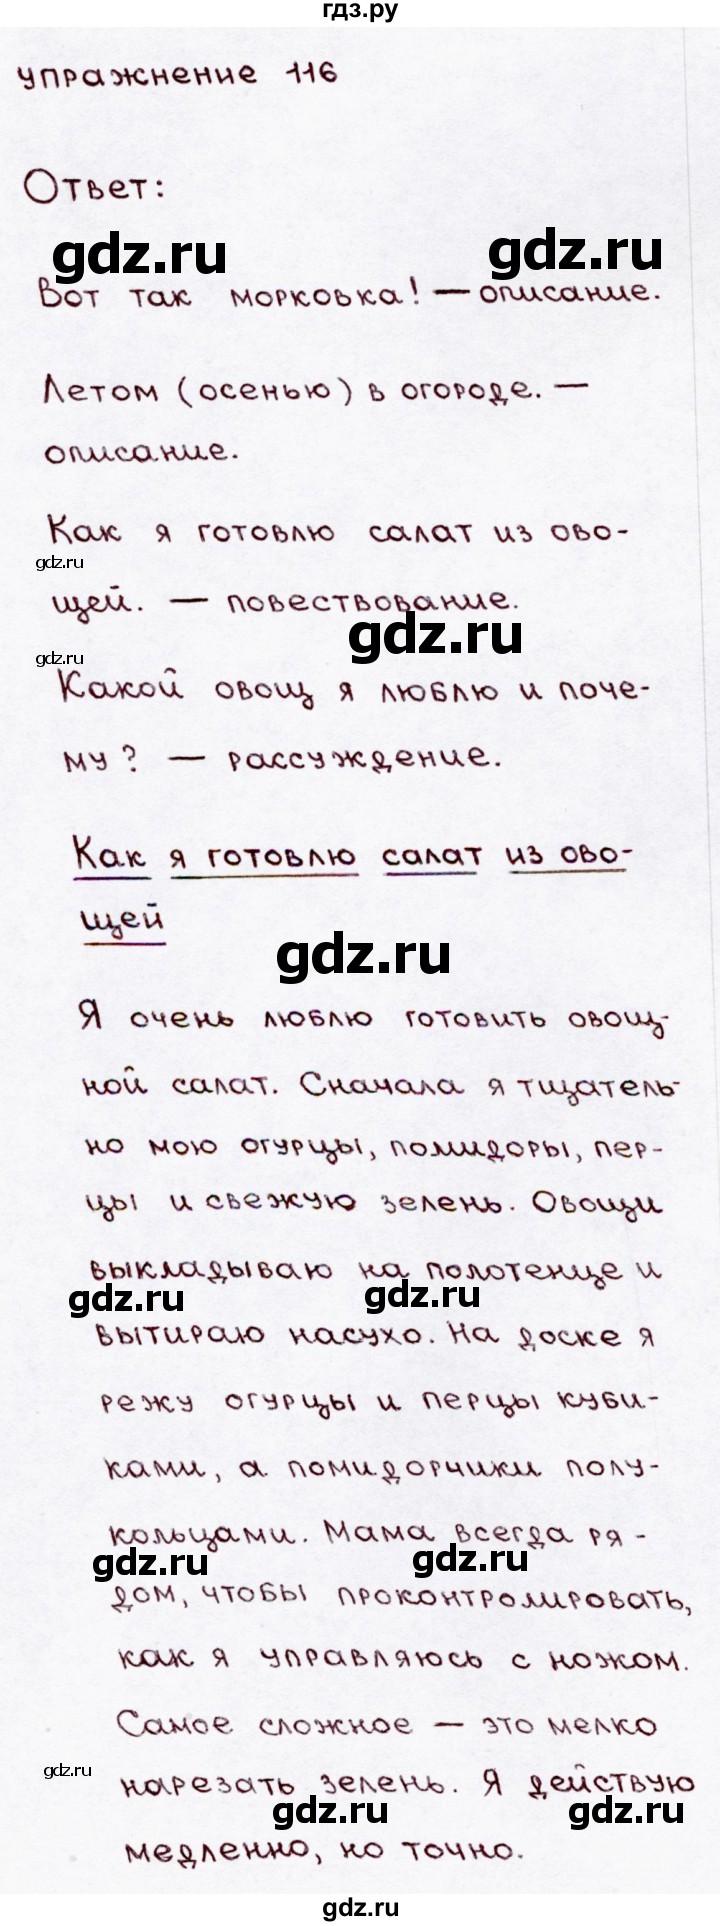 гдз.ру
упражнение 116
Ответ:
gdz.ru
gdz.ru
Вот так морковка! — описание.
Летом (осенью) в огороде. —
описание.
Как я готовлю салат из ово-
gdz.ru
щей. — повествование.
gdz.ru
gdz.ru
Какой овощ я люблю и поче-
му? — рассуждение.
Как я готовлю салат из ово-
щей
gdz.ru
Я очень люблю готовить овощ-
ной салат. Сначала я тщатель-
но мою огурцы, помидоры, пер-
цы и свежую зелень. Овощи
выкладываю на полотенце и
gdz.ru
gdz.ru
вытираю насухо. На доске я
режу огурцы и перцы куби-
ками, а помидорчики полу-
кольцами. Мама всегда ря-
gdz.ru
gdz.ru
дом, чтобы проконтролировать,
как я управляюсь с ножом.
Самое сложное — это мелко
gdz.ru
нарезать зелень. Я действую
gdz.ru
gdz.ru
медленно, но точно.
gdz.ru